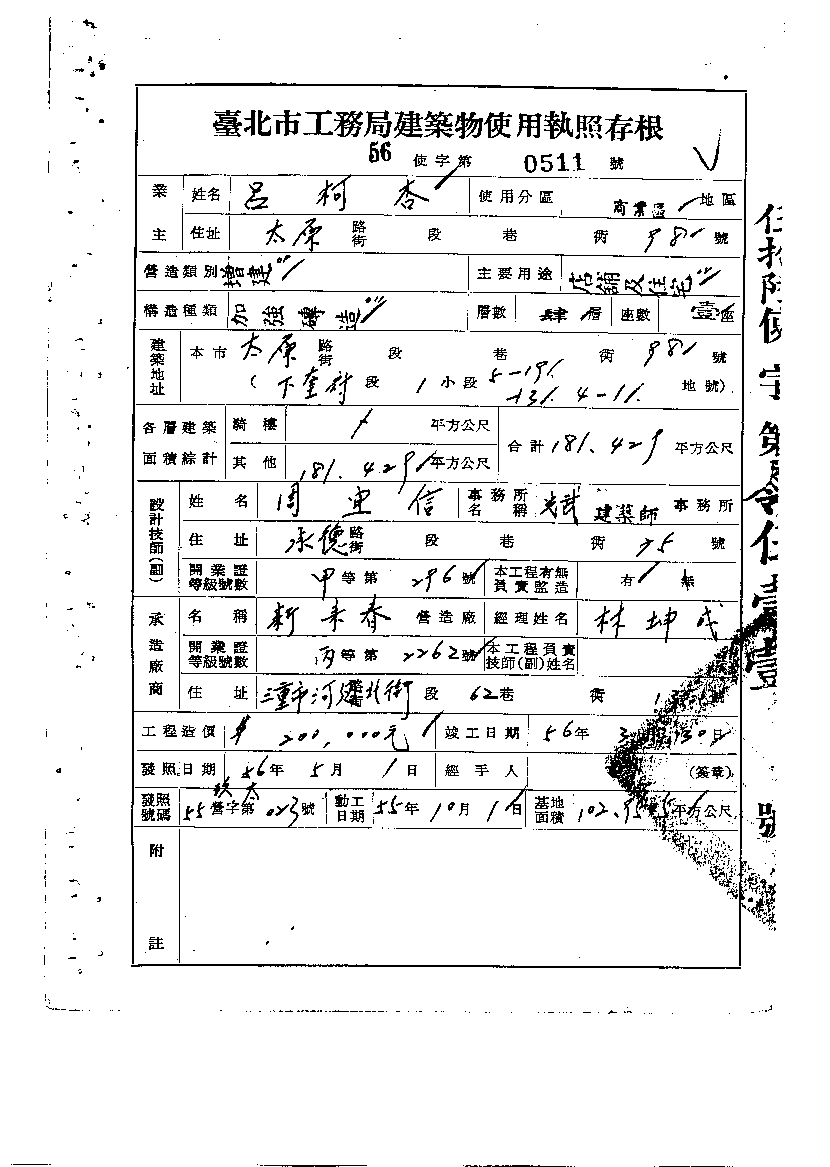 臺北市工務局建築物使用執照存根
56 使字第 0511 號
業主 姓名 呂柯杏 使用分區 商業區 地區
住址 太原 路街 段 巷 衖 98 號
營造類別 增建 主要用途 店舖及住宅
構造種類 加強磚造 層數 肆層 座數 壹座
建築地址 本市 太原 路街 段 巷 衖 98 號
(下奎府段 1 小段 5-19 4-11 地號)
各層建築面積綜計 騎樓 平方公尺 合計 181.429 平方公尺
其他 181.429 平方公尺
設計技師(副) 姓名 周宜信 事務所名稱 建築師 事務所
住址 承德 路街 段 巷 衖 75 號
開業證等級號數 甲等第 296 號 本工程有無負責監造 有 無
承造廠商 名稱 新來春 營造廠 經理姓名 林坤成
開業證等級號數 丙等第 2262 號 本工程負責技師(副)姓名
住址 三重市河邊北街 段 62巷 衖
工程造價 $200,000元 竣工日期 56年 3月30日
發照日期 56年5月1日 經手人 (簽章)
發照號碼 55 營字第 023 號 動工日期 55年10月1日 基地面積 102.95 平方公尺
附註
伍拾陸使字第零伍壹壹號